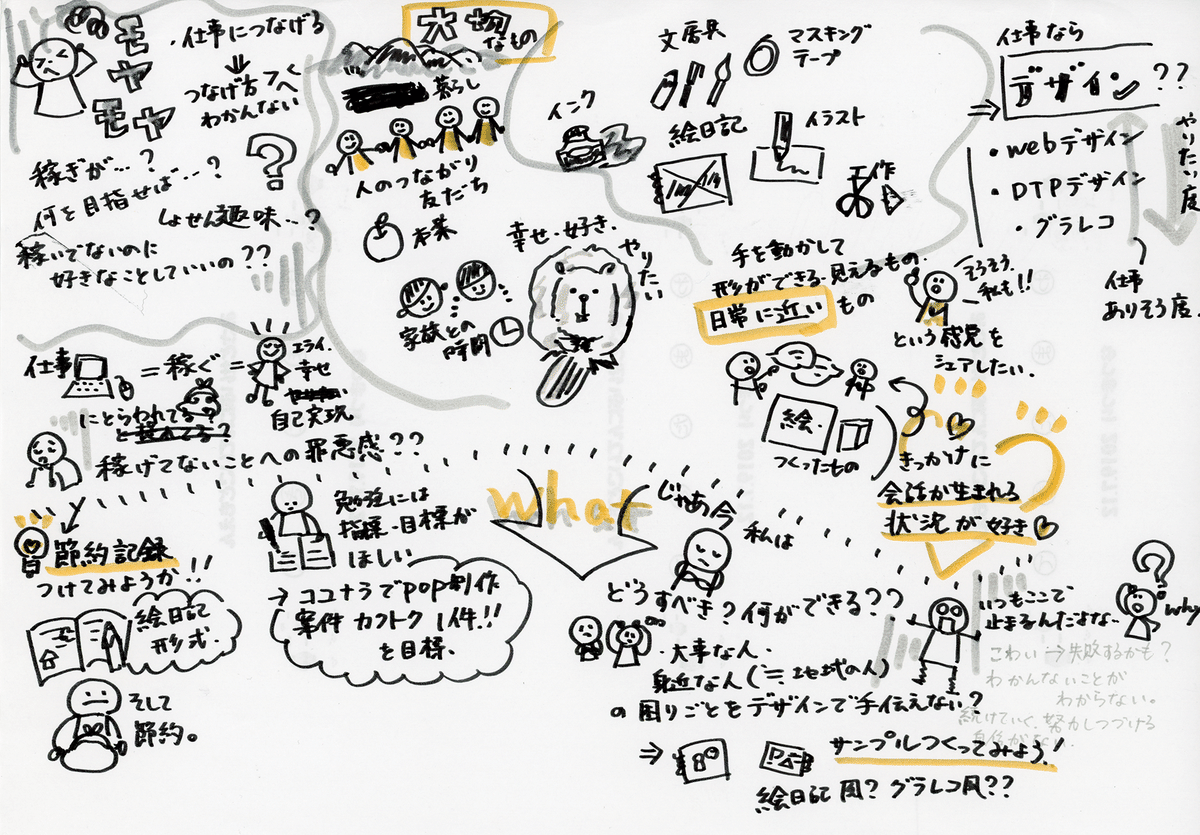 モヤモヤ
・仕事につなげる
つなげ方
わかんない
稼ぎが…?
何を目指せば…?
しょせん趣味…?
稼いでないのに
好きなことしていいの??
大切なもの
暮らし
人のつながり
友だち
お菓子
家族との
時間
幸せ・好き・
やりたい
文房具
マスキング
テープ
インク
絵日記
イラスト
工作
手を動かして
形ができる、見えるもの。
日常に近いもの
そうそう、
私も!!
という感覚を
シェアしたい。
絵
つくったもの
きっかけに
会話が生まれる
状況が好き
仕事なら
デザイン??
・webデザイン
・DTPデザイン
・グラレコ
やりたい度
仕事
ありそう度
仕事
=稼ぐ=
エライ・
幸せ
自己実現
にとらわれてる?
稼げてないことへの罪悪感??
節約記録
つけてみようか!!
絵日記
形式。
そして
節約。
勉強には
指標・目標が
ほしい
→ココナラでPOP制作
案件 カクトク 1件!!
を目標。
what
じゃあ今
私は
どうすべき?何ができる??
・大事な人・
身近な人(≒地域の人)
の困りごとをデザインで手伝えない?
⇒
サンプルつくってみよう!
絵日記風?グラレコ風??
いつもここで
止まるんだよな…
why
こわい→失敗するかも?
わかんないことが
わからない。
続けていく、努力しつづける
自信がない。